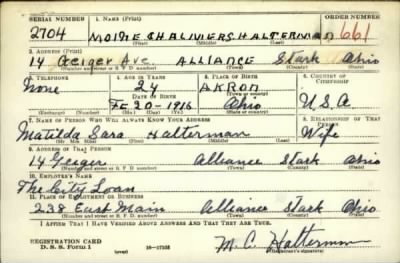 SERIAL NUMBER 1. NAME (Print) ORDER NUMBER
2704 CHALMERS HALTERMAN 1661
(First) (Middle) (Last)
2. ADDRESS (Print)
14 Geiger Ave. ALLIANCE Stark Ohio
(Number and street or R. F. D. number) (Town) (County) (State)
3. TELEPHONE 4. AGE IN YEARS 5. PLACE OF BIRTH 6. COUNTRY OF CITIZENSHIP
None 24 AKRON
DATE OF BIRTH (Town or county)
FE 20-1916 Ohio U.S.A
(Exchange) (Number) (Mo.) (Day) (Yr.) (State or country)
7. NAME OF PERSON WHO WILL ALWAYS KNOW YOUR ADDRESS 8. RELATIONSHIP OF THAT PERSON
Matilda Sara Halterman Wife
(Mr., Mrs., Miss) (First) (Middle) (Last)
9. ADDRESS OF THAT PERSON
14 Geiger Alliance Stark Ohio
(Number and street or R. F. D. number) (Town) (County) (State)
10. EMPLOYER'S NAME
The City Loan
11. PLACE OF EMPLOYMENT OR BUSINESS
238 East Main Alliance Stark Ohio
(Number and street or R. F. D. number) (Town) (County) (State)
I AFFIRM THAT I HAVE VERIFIED ABOVE ANSWERS AND THAT THEY ARE TRUE.
REGISTRATION CARD
D. S. S. Form 1 (over) 16-17105 M. C. Halterman
(Registrant's signature)